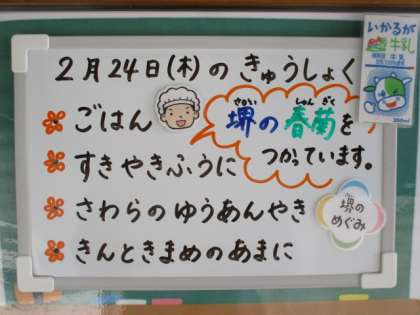 2月24日(木)のきゅうしょく
ごはん
さかい しゅん ぎく
堺の春菊を
つかっています。
すきやきふうに
さわらのゆうあんやき
きんときまめのあまに
堺の
めぐみ
いかるが
牛乳
200ml